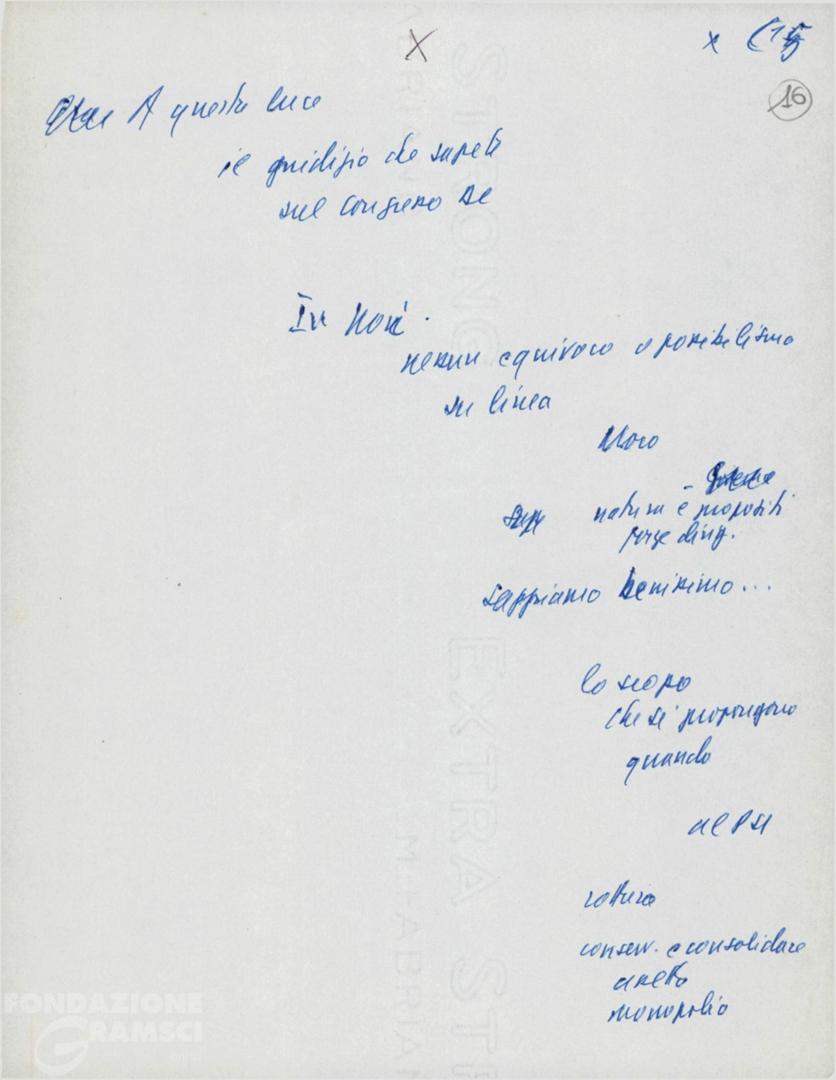 X
x (15
16
A questa luce
il giudizio che sapete
sul congresso DC
In noi
nessun equivoco o possibilismo
su linea
Moro
natura e propositi
forze dirig.
sappiamo benissimo...
lo scopo
che si propongono
quando
al PSI
rottura
conserv. e consolidare
assetto
monopolio
STRONG
EXTRA ST
FABRIANO
M. FABRIAN
FONDAZIONE
GRAMSCI